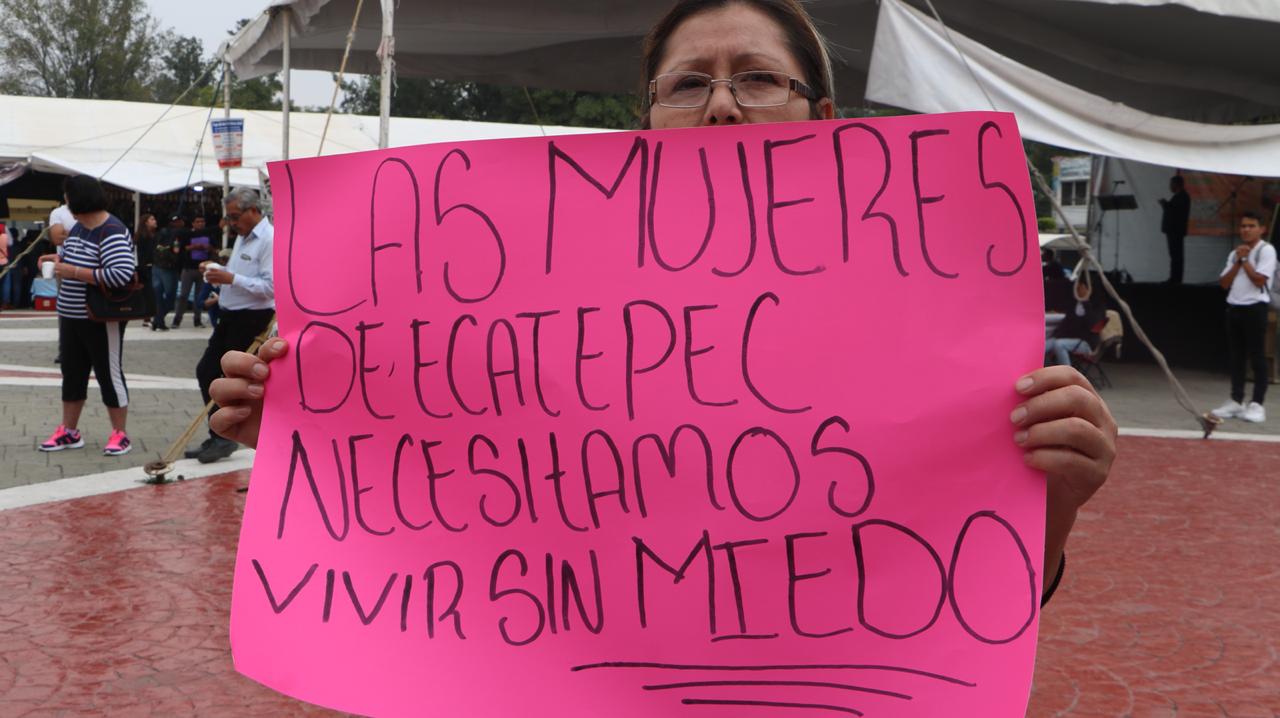 LAS MUJERES
DE ECATEPEC
NECESITAMOS
VIVIR SIN MIEDO